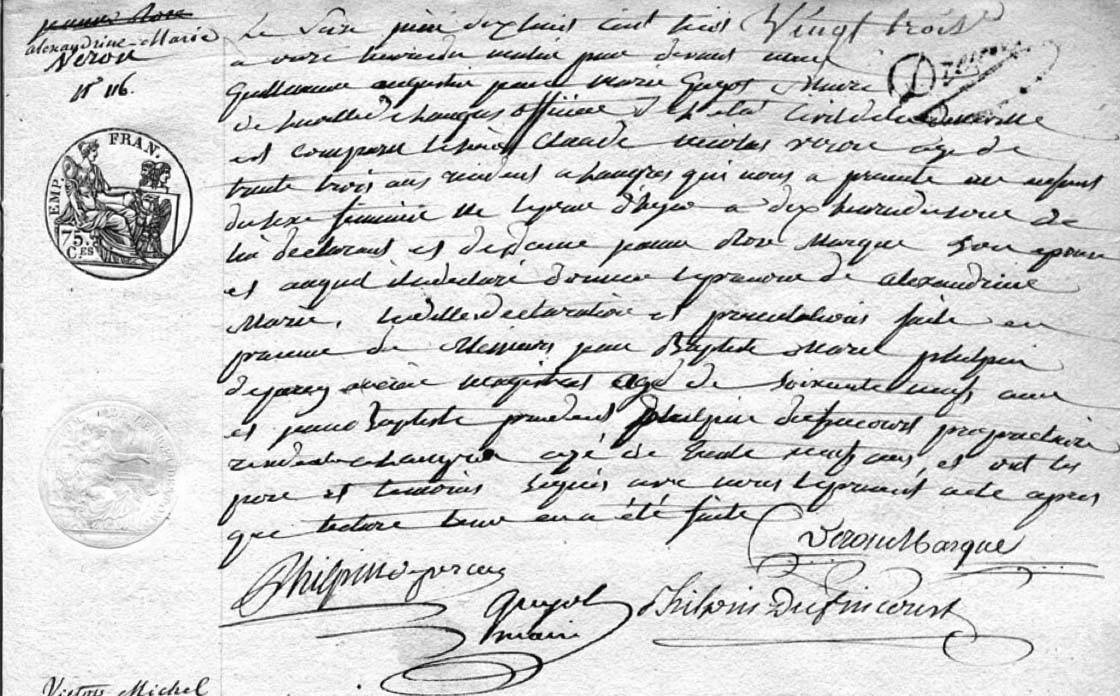 jeanne Rose
alexandrine-Marie
Veron
n° 116.
EMP. FRAN.
75.
C.ES
Le Seize juin dix huit cent Vingt trois
à onze heures du matin par devant nous
Guillaume augustin pierre Marie Guyot Maire
de la ville de Langres officier de l'état Civil de la
est comparu le sieur Claude nicolas veron age de
trente trois ans resident a Langres qui nous a presenté un enfant
du sexe feminin né le jour d'hyer à dix heures du soir de
lui declarant et de dame jeanne Rose Marque Son epouse
et auquel il a declaré donner le prenom de alexandrine
Marie, les dittes declaration et presentations faite en
presence de Messieurs jean Baptiste Marie philpin
ancien Magistrat agé de Soixante neuf ans
et jean Baptiste prudent philpin propriétaire
resident a Langres agé de trente neuf ans, et ont les
pere et temoins Signés avec nous le present acte apres
que lecture leur en a été faite
Veron Marque
Philpin
Guyot
maire
Philpin
Victor Michel